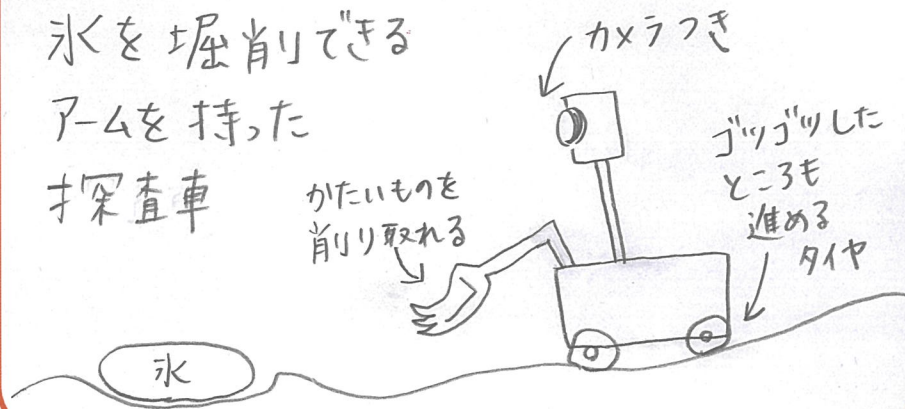 氷を堀削できる
アームを持った
探査車
カメラつき
かたいものを
削り取れる
ゴツゴツした
ところも
進める
タイヤ
氷